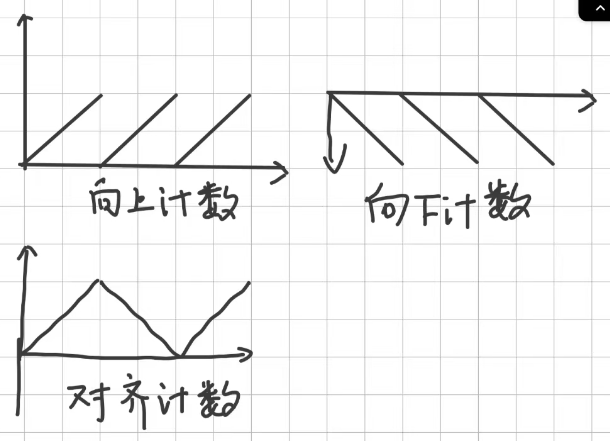 向上计数
向下计数
对齐计数